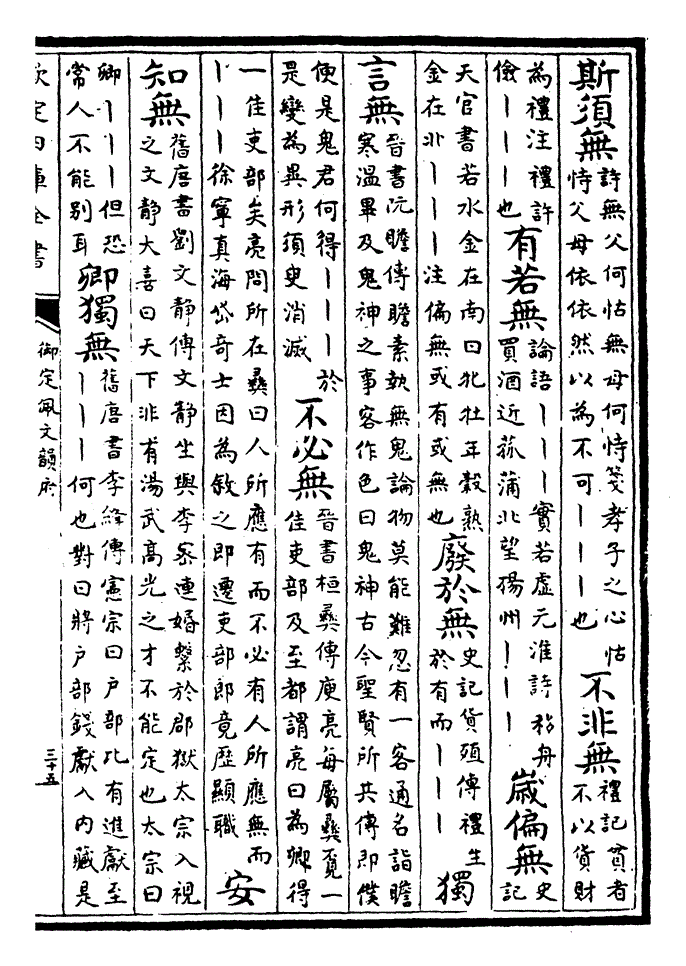 斯須無
詩無父何怙無母何恃箋孝子之心怙
恃父母依依然以為不可丨丨丨也
不非無
禮記貧者
不以貨財
為禮注禮許
儉丨丨丨也
有若無
論語丨丨丨實若虛元淮詩移舟
買酒近菰蒲北望揚州丨丨丨
歲偏無
史
記
天官書若水金在南曰牝牡年穀熟
金在北丨丨丨注偏無或有或無也
廢於無
史記貨殖傳禮生
於有而丨丨丨
獨
言無
晉書阮瞻傳瞻素執無鬼論物莫能難忽有一客通名詣瞻
寒溫畢及鬼神之事客作色曰鬼神古今聖賢所共傳即僕
便是鬼君何得丨丨丨於
是變為異形須臾消滅
不必無
晉書桓彝傳庾亮每屬彝覓一
佳吏部及至都謂亮曰為卿得
一佳吏部矣亮問所在彝曰人所應有而不必有人所應無而
丨丨丨徐寧真海岱奇士因為敘之即遷吏部郎竟歷顯職
安
知無
舊唐書劉文靜傳文靜坐與李密連婚繫於郡獄太宗入視
之文靜大喜曰天下非有湯武高光之才不能定也太宗曰
卿丨丨丨但恐
常人不能別耳
卿獨無
舊唐書李絳傳憲宗曰戶部比有進獻至
丨丨丨何也對曰將戶部錢獻入內藏是
欽定四庫全書
御定佩文韻府
三十五